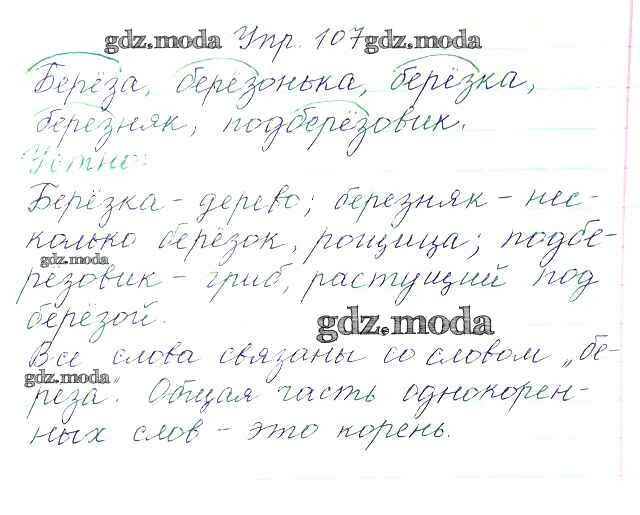 gdz.moda Упр. 107 gdz.moda
Берёза, берёзонька, берёзка,
березняк, подберёзовик.
Устно:
Берёзка - дерево; березняк - нес-
колько берёзок, рощица; подбе-
gdz.moda
рёзовик - гриб, растущий под
берёзой.
gdz.moda
Все слова связаны со словом „бе-
gdz.moda
рёза". Общая часть однокорен-
ных слов - это корень.